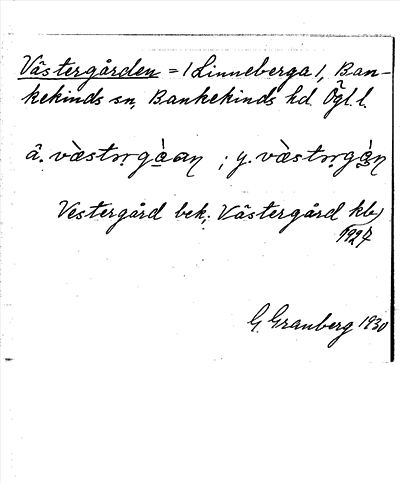 Västergården = /Linneberga/, Ban-
kekinds sn, Bankekinds hd. Ögl. l.
ä. væ̀stərgàan ; y. væ̀stərgàn
Vestergård bek; Västergård kb
1927
G. Granberg 1930